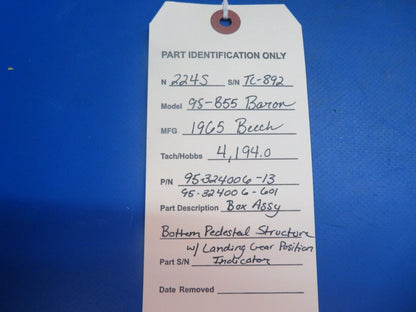 PART IDENTIFICATION ONLY
N 224S S/N TC-892
Model 95-B55 Baron
MFG 1965 Beech
Tach/Hobbs 4,194.0
P/N 95-324006-13
95-324006-601
Part Description Box Assy
Bottom Pedestal Structure
w/ Landing Gear Position
Part S/N Indicator
Date Removed